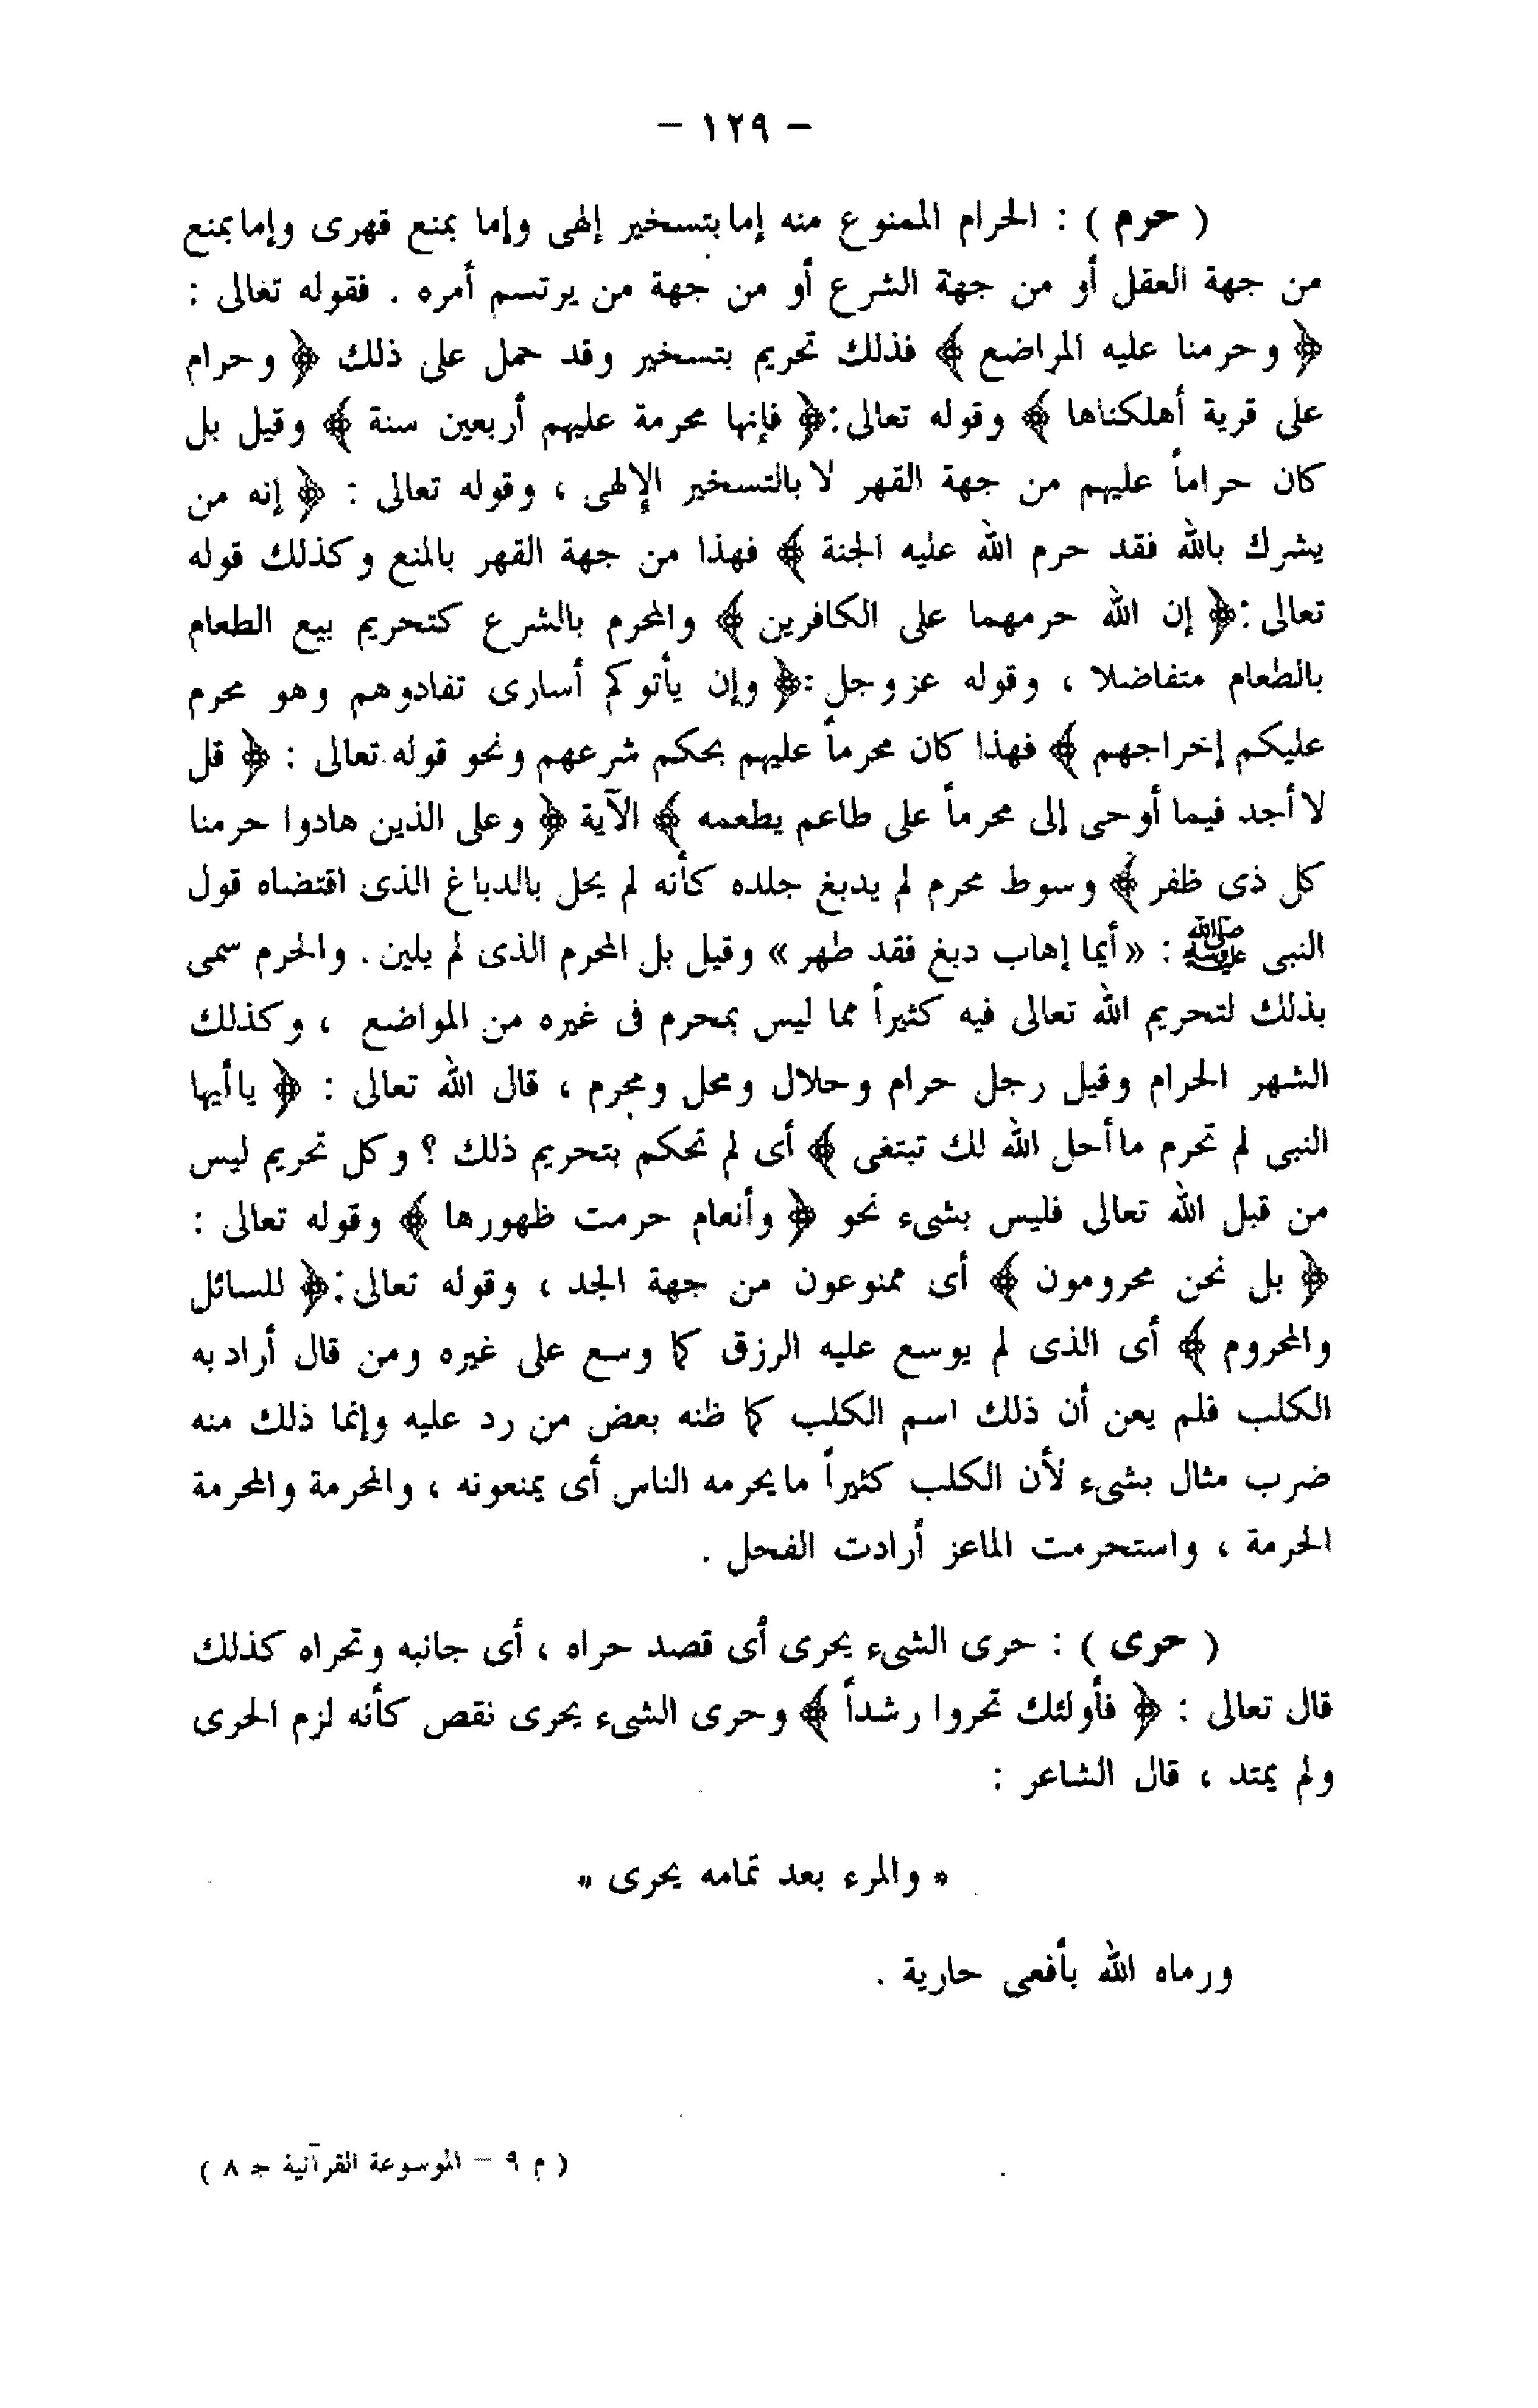 – ١٢٩ –
( حرم ) : الحرام الممنوع منه إما بتسخير إلهى وإما بمنع قهرى وإما بمنع
من جهة العقل أو من جهة الشرع أو من جهة من يرتسم أمره . فقوله تعالى :
﴿ وحرمنا عليه المراضع ﴾ فذلك تحريم بتسخير وقد حمل على ذلك ﴿ وحرام
على قرية أهلكناها ﴾ وقوله تعالى : ﴿ فإنها محرمة عليهم أربعين سنة ﴾ وقيل بل
كان حراماً عليهم من جهة القهر لا بالتسخير الإلهى ، وقوله تعالى : ﴿ إنه من
يشرك بالله فقد حرم الله عليه الجنة ﴾ فهذا من جهة القهر بالمنع وكذلك قوله
تعالى : ﴿ إن الله حرمهما على الكافرين ﴾ والمحرم بالشرع كتحريم بيع الطعام
بالطعام متفاضلا ، وقوله عز وجل : ﴿ وإن يأتوكم أسارى تفادوهم وهو محرم
عليكم إخراجهم ﴾ فهذا كان محرماً عليهم بحكم شرعهم ونحو قوله تعالى : ﴿ قل
لا أجد فيما أوحى إلى محرماً على طاعم يطعمه ﴾ الآية ﴿ وعلى الذين هادوا حرمنا
كل ذى ظفر ﴾ وسوط محرم لم يدبغ جلده كأنه لم يحل بالدباغ الذى اقتضاه قول
النبى ﷺ : « أيما إهاب دبغ فقد طهر » وقيل بل المحرم الذى لم يلين . والحرم سمى
بذلك لتحريم الله تعالى فيه كثيراً مما ليس بمحرم فى غيره من المواضع ، وكذلك
الشهر الحرام وقيل رجل حرام وحلال ومحل ومحرم ، قال الله تعالى : ﴿ يا أيها
النبى لم تحرم ما أحل الله لك تبتغى ﴾ أى لم تحكم بتحريم ذلك ؟ وكل تحريم ليس
من قبل الله تعالى فليس بشىء نحو ﴿ وأنعام حرمت ظهورها ﴾ وقوله تعالى :
﴿ بل نحن محرومون ﴾ أى ممنوعون من جهة الجد ، وقوله تعالى : ﴿ للسائل
والمحروم ﴾ أى الذى لم يوسع عليه الرزق كما وسع على غيره ومن قال أراد به
الكلب فلم يعن أن ذلك اسم الكلب كما ظنه بعض من رد عليه وإنما ذلك منه
ضرب مثال بشىء لأن الكلب كثيراً ما يحرمه الناس أى يمنعونه ، والمحرمة والمحرمة
الحرمة ، واستحرمت الماعز أرادت الفحل .
( حرى ) : حرى الشىء يحرى أى قصد حراه ، أى جانبه وتحراه كذلك
قال تعالى : ﴿ فأولئك تحروا رشداً ﴾ وحرى الشىء يحرى نقص كأنه لزم الحرى
ولم يمتد ، قال الشاعر :
* والمرء بعد تمامه يحرى *
ورماه الله بأفعى حارية .
( م ٩ – الموسوعة القرآنية جـ ٨ )